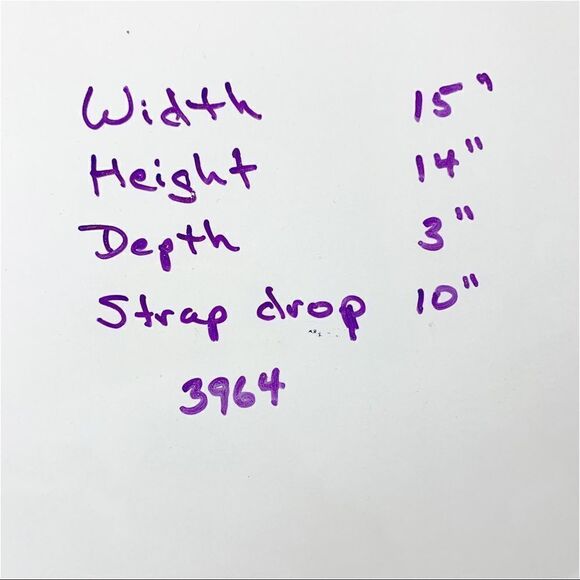 Width 15"
Height 14"
Depth 3"
Strap drop 10"
3964